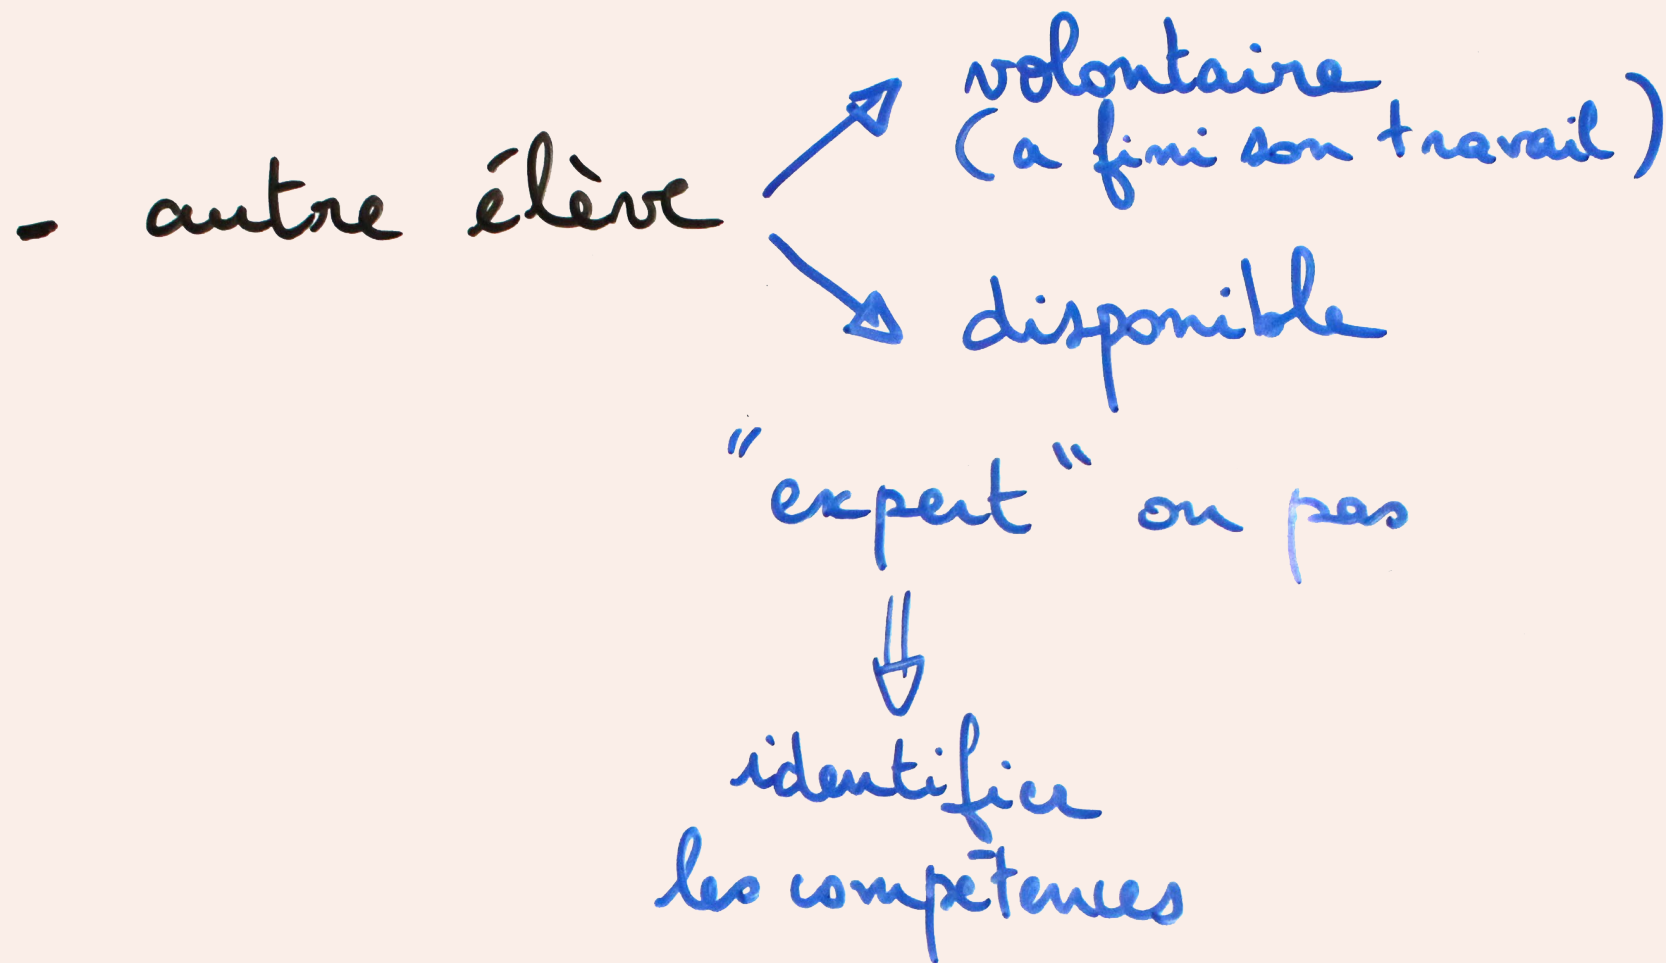 - autre élève
volontaire
(a fini son travail)
disponible
"expert" ou pas
identifier
les compétences